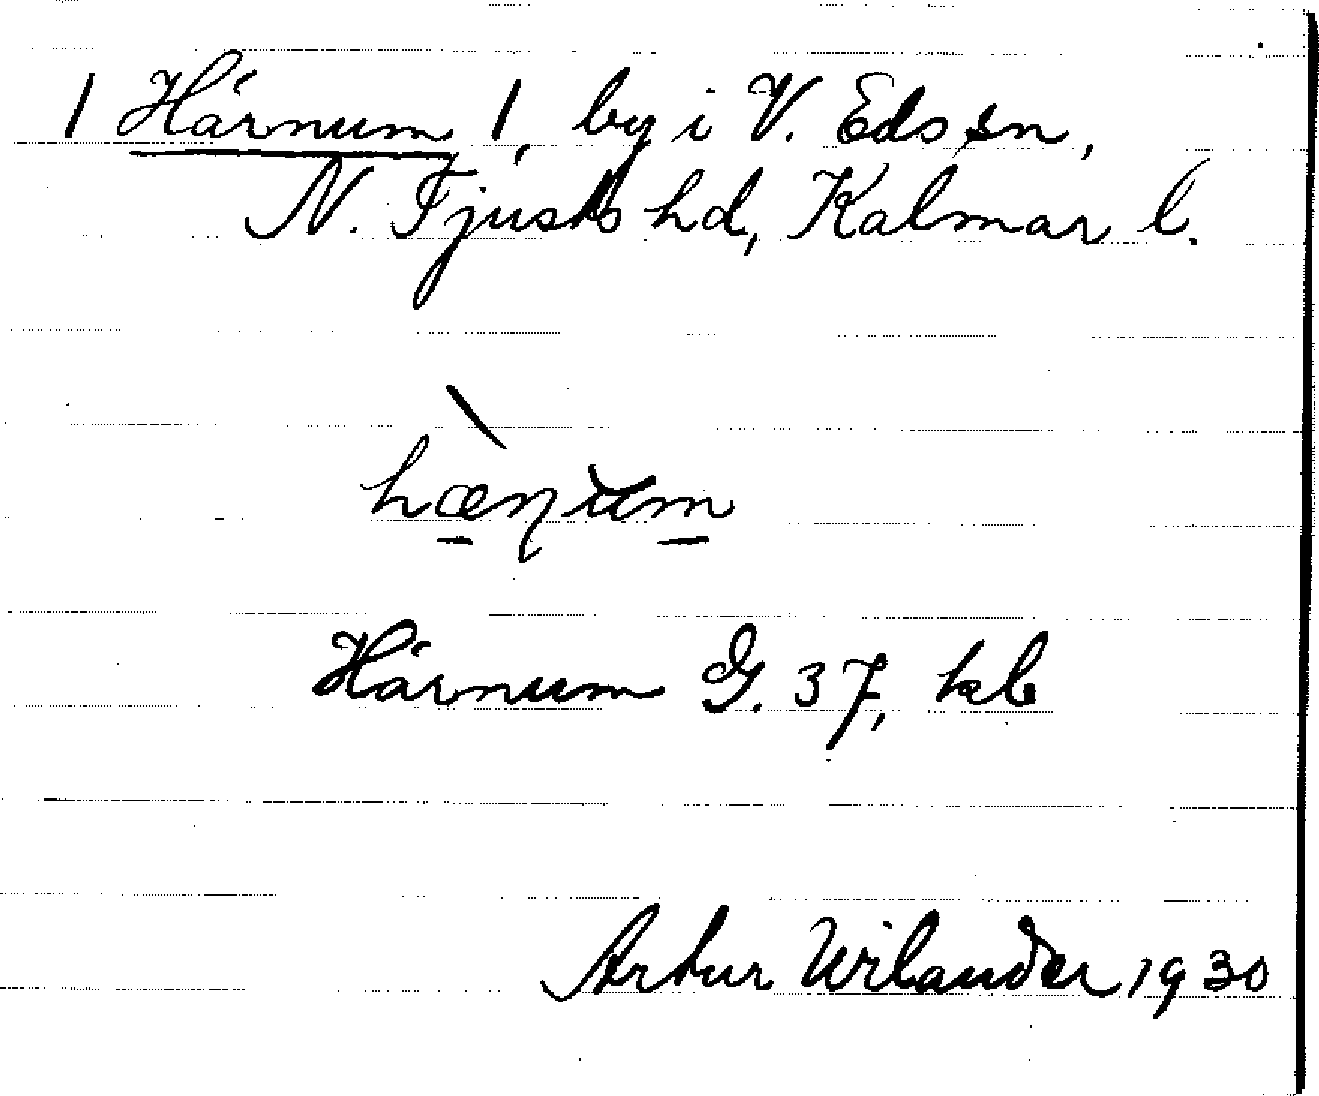 1 Härnum 1, by i V. Eds sn,
N. Tjusts hd, Kalmar l.
Härnum G. 37, kb
Artur Wilander 1930